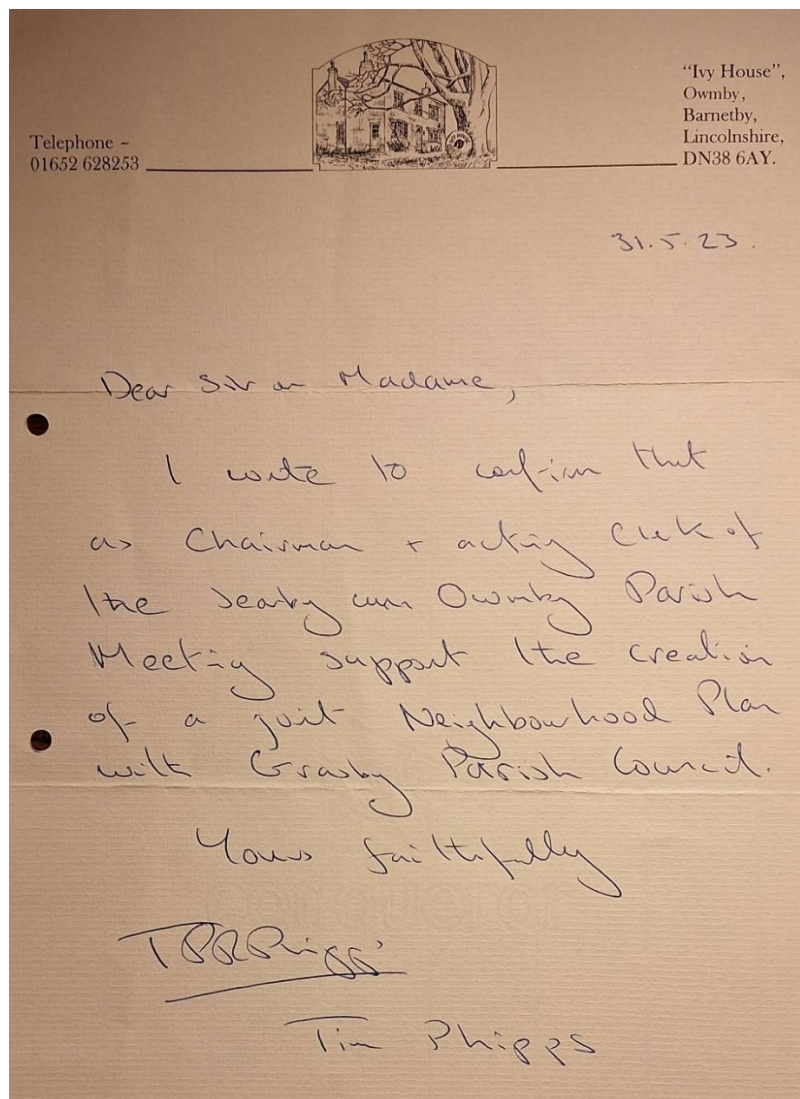 Telephone ~
01652 628253
"Ivy House",
Owmby,
Barnetby,
Lincolnshire,
DN38 6AY.
31.5.23.
Dear Sir or Madame,
I write to confirm that
as Chairman + acting Clerk of
the Searby cum Owmby Parish
Meeting support the creation
of a joint Neighbourhood Plan
with Grasby Parish Council.
Yours faithfully
TPRPhipps
Tim Phipps